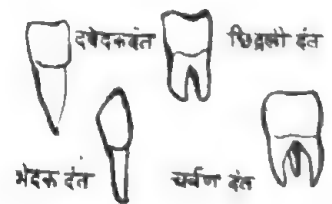 छेदकदंत द्विदली दंत
भेदक दंत चर्वण दंत